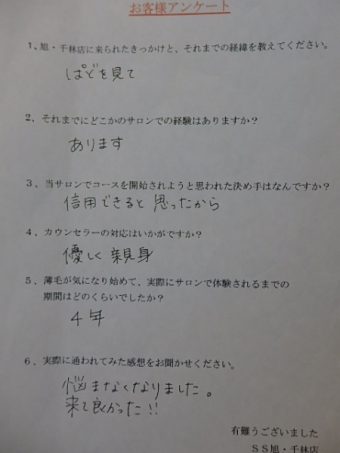 お客様アンケート
1、旭・千林店に来られたきっかけと、それまでの経緯を教えてください。
ぱどを見て
2、それまでにどこかのサロンでの経験はありますか?
あります
3、当サロンでコースを開始されようと思われた決め手はなんですか?
信用できると思ったから
4、カウンセラーの対応はいかがですか?
優しく親身
5、薄毛が気になり始めて、実際にサロンで体験されるまでの
期間はどのくらいでしたか?
4年
6、実際に通われてみた感想をお聞かせください。
悩まなくなりました。
来て良かった!!
有難うございました
SS旭・千林店